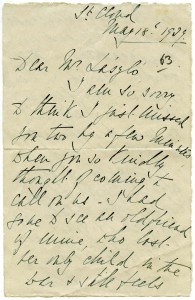 St. Cloud
May 18th 1937
63
Dear Mr László
I am so sorry
to think I just missed
you two by a few minutes
when you so kindly
thought of coming to
call on us. I had
gone to see an old friend
of mine, who lost
her only child in the
war & still feels